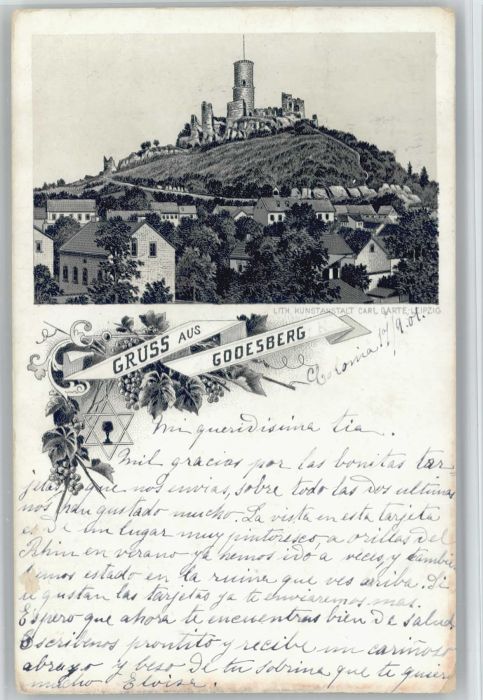 LITH. KUNSTANSTALT CARL GARTE, LEIPZIG
GRUSS AUS GODESBERG
Colonia 17/9.01.
Mi queridisima tia.
Mil gracias por las bonitas tar-
jetas que nos envias, sobre todo las dos ultimas
nos han gustado mucho. La vista en esta tarjeta
es de un lugar muy pintoresco, a orillas del
Rhin en verano ya hemos ido a veces, y tambien
hemos estado en la ruine que ves arriba. Si
te gustan las tarjetas ya te enviaremos mas.
Espero que ahora te encuentras bien de salud.
Escribenos prontito y recibe un cariñoso
abrazo y beso de tu sobrina que te quiere
mucho Eloisa.